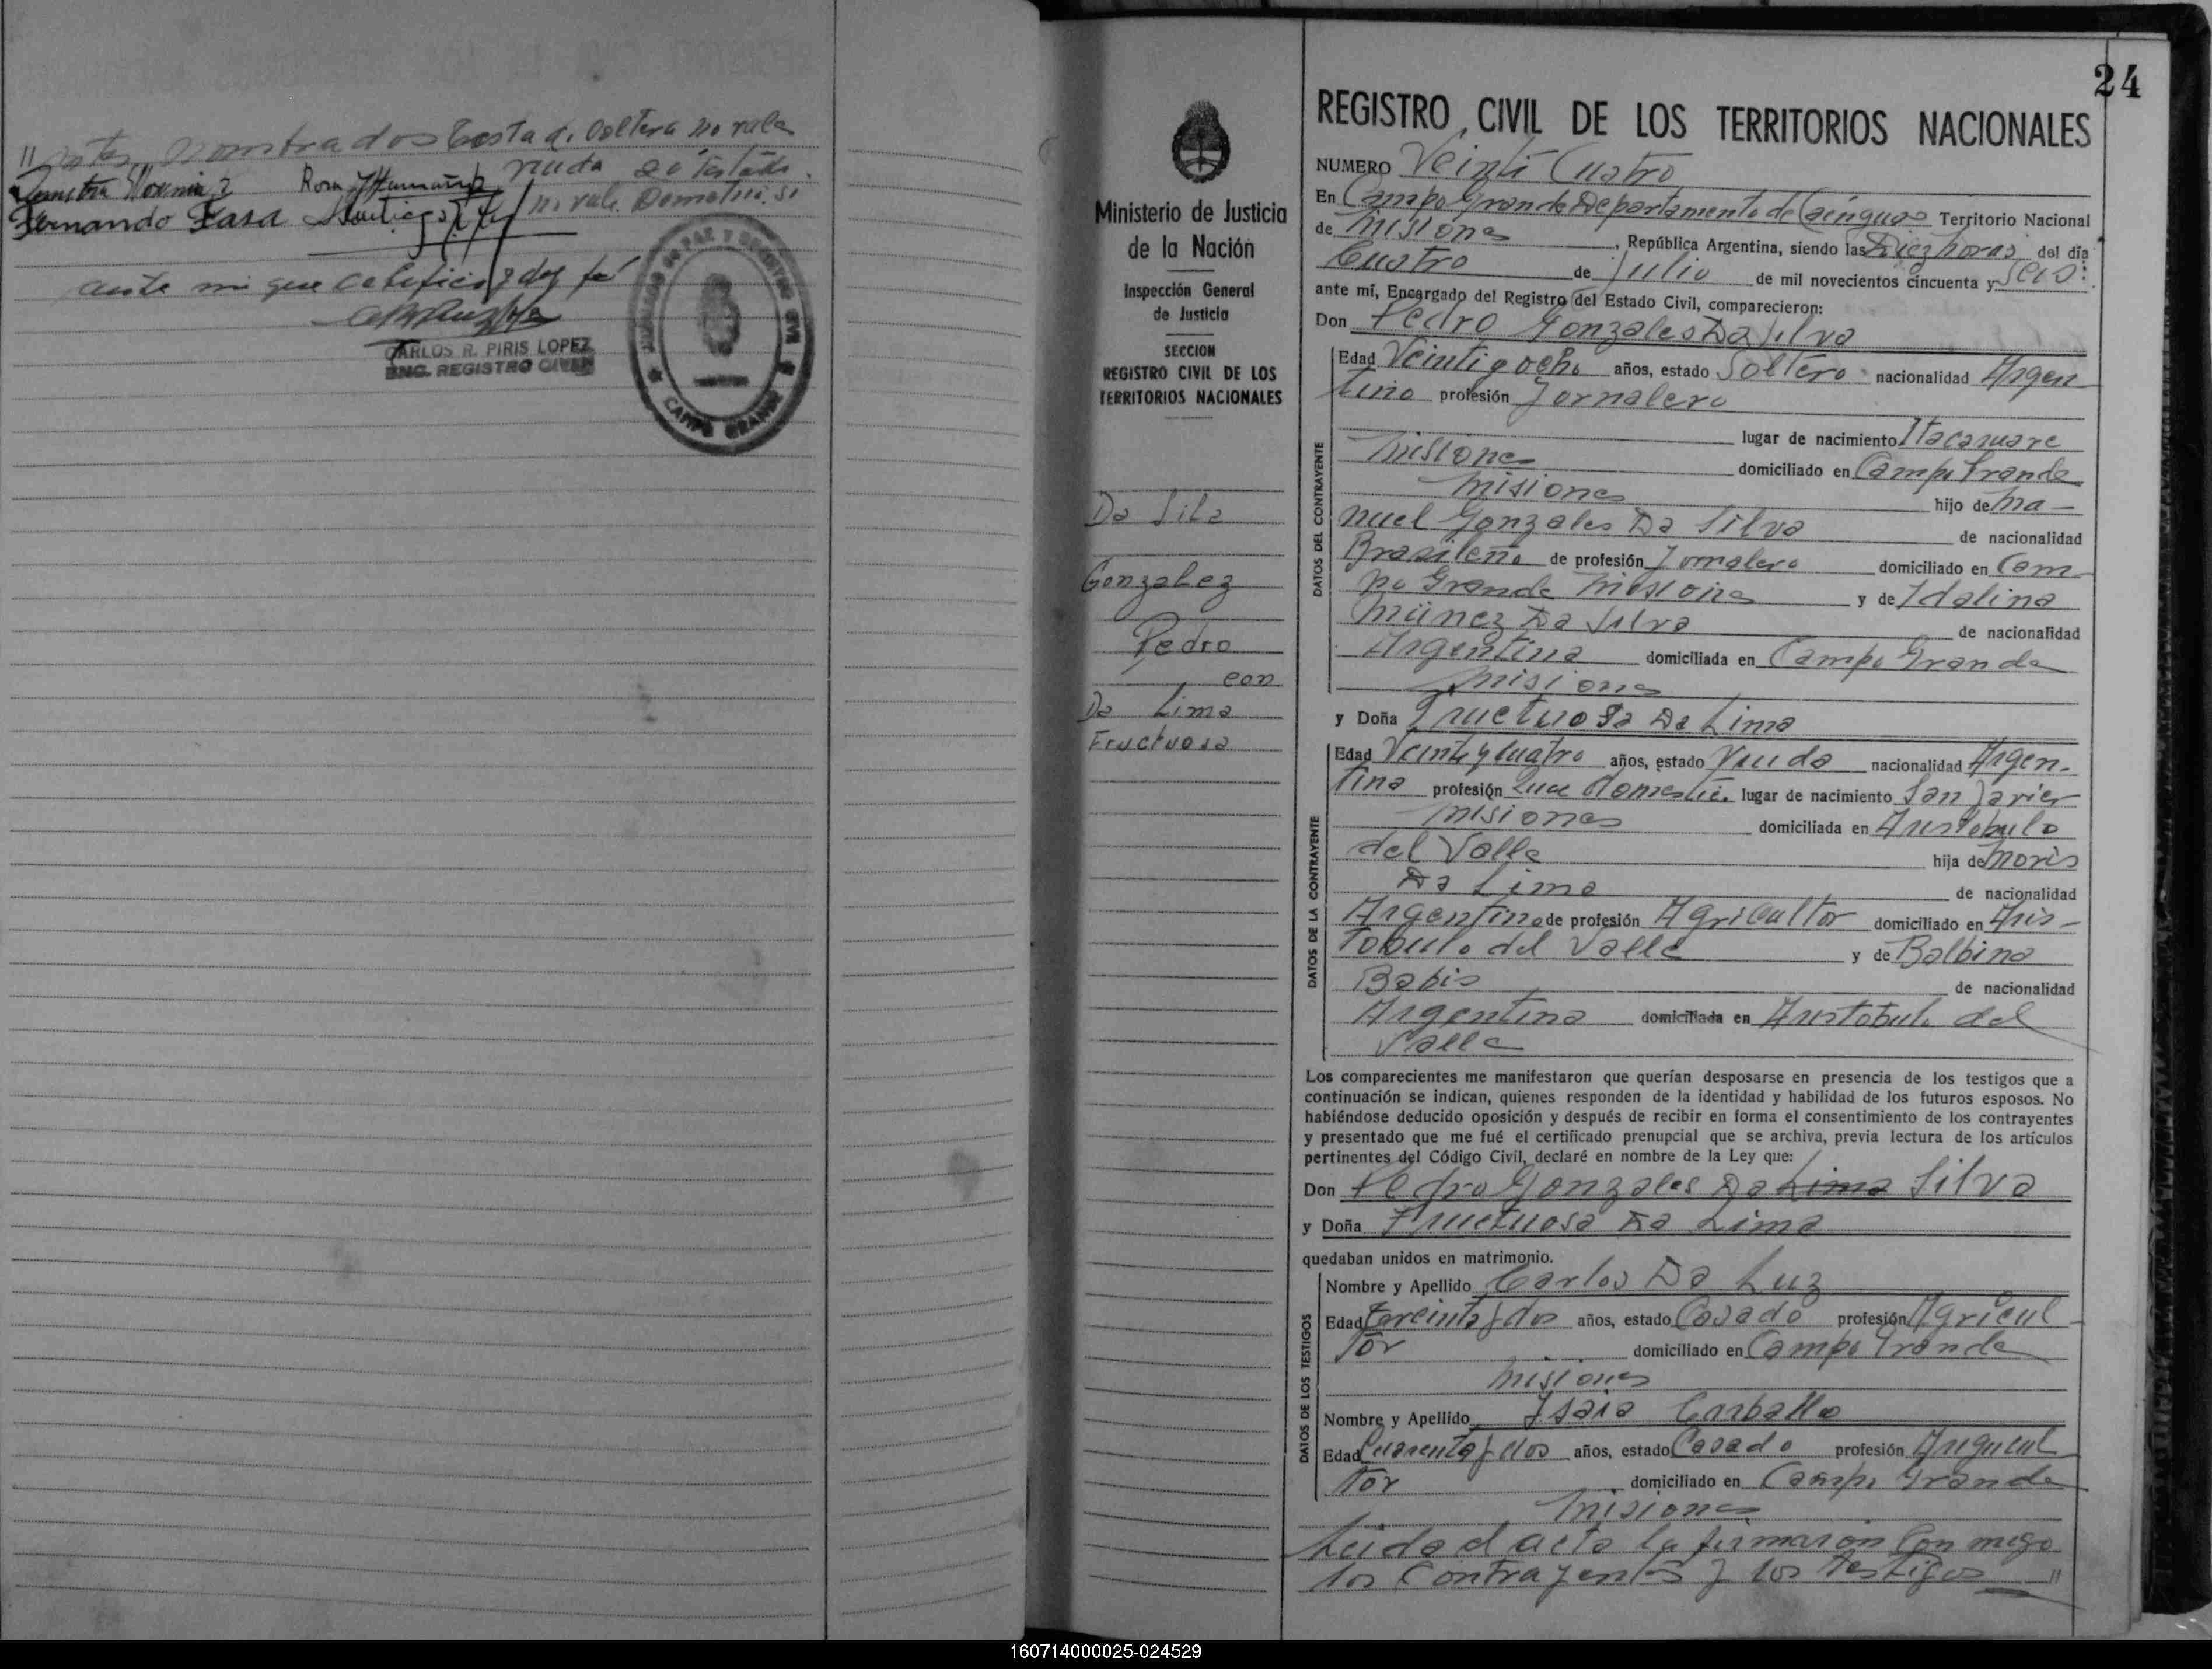 " antes nombrados Testa d. Soltera no vale
viuda So Testado.
no vale. Domestic. si
Rosa
Fernando Santiago
ante mi que certifico y doy fé
CARLOS R. PIRIS LOPEZ
ENC. REGISTRO CIVIL
JUZGADO DE PAZ Y REGISTRO CIVIL
CAMPO GRANDE
24
Ministerio de Justicia
de la Nación
Inspección General
de Justicia
SECCION
REGISTRO CIVIL DE LOS
TERRITORIOS NACIONALES
Da Sila
Gonzalez
Pedro
con
Da Lima
Fructuosa
REGISTRO CIVIL DE LOS TERRITORIOS NACIONALES
NUMERO Veinti Cuatro
En Campo Grande Departamento de Cainguas Territorio Nacional
de Misiones, República Argentina, siendo las Diez horas del día
Cuatro de Julio de mil novecientos cincuenta y Seis:
ante mí, Encargado del Registro del Estado Civil, comparecieron:
Don Pedro Gonzales Da Silva
DATOS DEL CONTRAYENTE
Edad Veinti y ocho años, estado Soltero nacionalidad Argen
tino profesión Jornalero
lugar de nacimiento Itacaruare
Misiones domiciliado en Campo Grande
Misiones hijo de Ma-
nuel Gonzales Da Silva de nacionalidad
Brasileño de profesión Jornalero domiciliado en Cam
po Grande Misiones y de Idalina
Münez Da Silva de nacionalidad
Argentina domiciliada en Campo Grande
Misiones
y Doña Fructuosa Da Lima
DATOS DE LA CONTRAYENTE
Edad Veinti y cuatro años, estado Viuda nacionalidad Argen-
tina profesión Que domestic. lugar de nacimiento San Javier
Misiones domiciliada en Aristobulo
del Valle hija de Moris
Da Lima de nacionalidad
Argentino de profesión Agricultor domiciliado en Aris-
tobulo del Valle y de Balbina
Babis de nacionalidad
Argentina domiciliada en Aristobulo del
Valle
Los comparecientes me manifestaron que querían desposarse en presencia de los testigos que a
continuación se indican, quienes responden de la identidad y habilidad de los futuros esposos. No
habiéndose deducido oposición y después de recibir en forma el consentimiento de los contrayentes
y presentado que me fué el certificado prenupcial que se archiva, previa lectura de los artículos
pertinentes del Código Civil, declaré en nombre de la Ley que:
Don Pedro Gonzales Da Lima Silva
y Doña Fructuosa Da Lima
quedaban unidos en matrimonio.
DATOS DE LOS TESTIGOS
Nombre y Apellido Carlos Da Luz
Edad Treinta y dos años, estado Casado profesión Agricul
tor domiciliado en Campo Grande
Misiones
Nombre y Apellido Isaia Carballo
Edad Cuarenta y dos años, estado Casado profesión Ariguicul
tor domiciliado en Campo Grande
Misiones
Leida el acta la firmaron Con migo
los Contrayentes y los testigos "
160714000025-024529